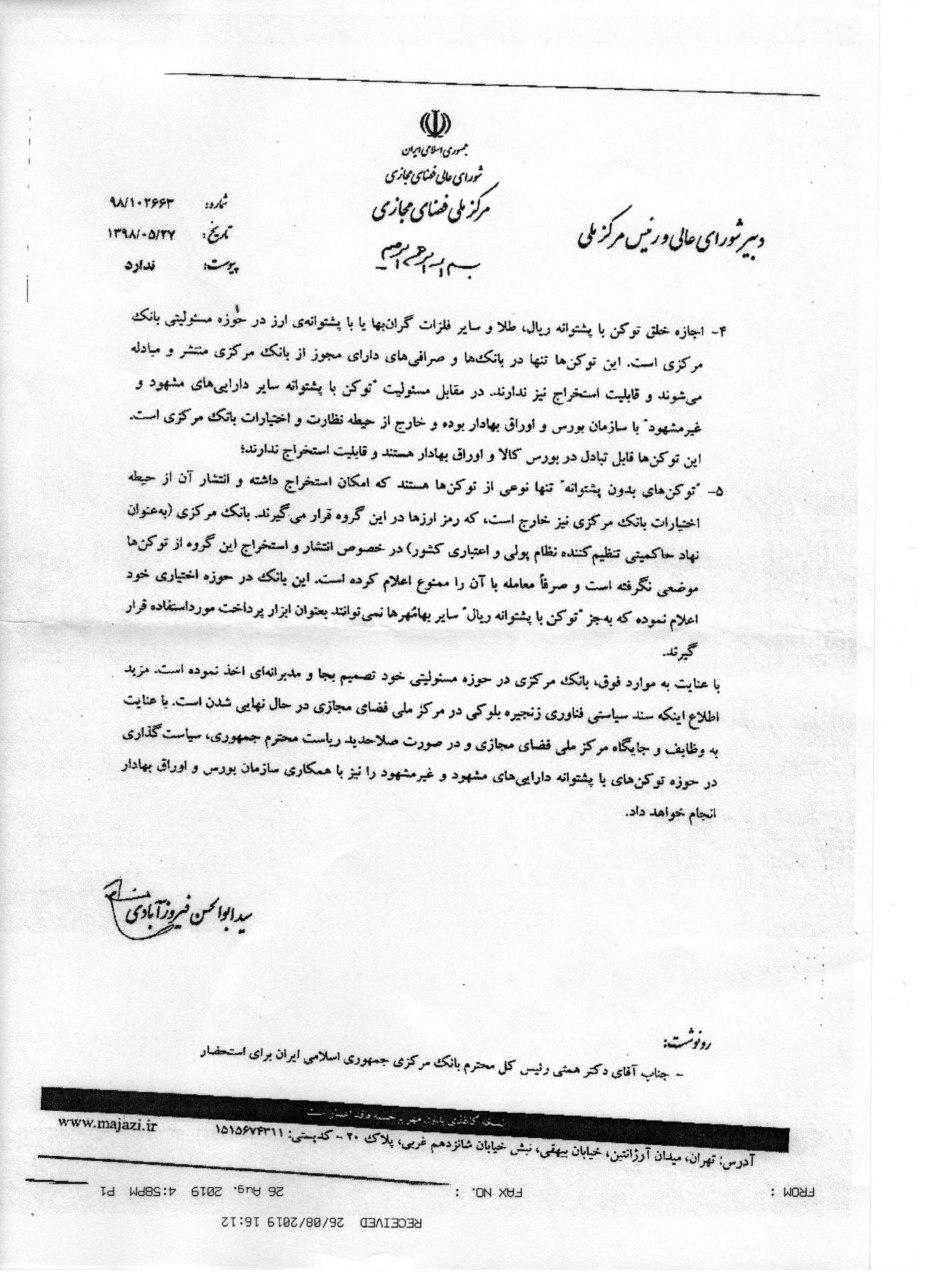 جمهوری اسلامی ایران
شورای عالی فضای مجازی
مرکز ملی فضای مجازی
بسم الله الرحمن الرحیم
دبیر شورای عالی و رئیس مرکز ملی
شماره: ۹۸/۱۰۲۶۶۳
تاریخ: ۱۳۹۸/۰۵/۲۷
پیوست: ندارد
۴- اجازه خلق توکن با پشتوانه ریال، طلا و سایر فلزات گران‌بها یا با پشتوانه‌ی ارز در حوزه مسئولیتی بانک
مرکزی است. این توکن‌ها تنها در بانک‌ها و صرافی‌های دارای مجوز از بانک مرکزی منتشر و مبادله
می‌شوند و قابلیت استخراج نیز ندارند. در مقابل مسئولیت "توکن با پشتوانه سایر دارایی‌های مشهود و
غیرمشهود" با سازمان بورس و اوراق بهادار بوده و خارج از حیطه نظارت و اختیارات بانک مرکزی است.
این توکن‌ها قابل تبادل در بورس کالا و اوراق بهادار هستند و قابلیت استخراج ندارند؛
۵- "توکن‌های بدون پشتوانه" تنها نوعی از توکن‌ها هستند که امکان استخراج داشته و انتشار آن از حیطه
اختیارات بانک مرکزی نیز خارج است، که رمز ارزها در این گروه قرار می‌گیرند. بانک مرکزی (به‌عنوان
نهاد حاکمیتی تنظیم‌کننده نظام پولی و اعتباری کشور) در خصوص انتشار و استخراج این گروه از توکن‌ها
موضعی نگرفته است و صرفاً معامله با آن را ممنوع اعلام کرده است. این بانک در حوزه اختیاری خود
اعلام نموده که به‌جز "توکن با پشتوانه ریال" سایر بهامُهرها نمی‌توانند بعنوان ابزار پرداخت مورداستفاده قرار
گیرند.
با عنایت به موارد فوق، بانک مرکزی در حوزه مسئولیتی خود تصمیم بجا و مدبرانه‌ای اخذ نموده است. مزید
اطلاع اینکه سند سیاستی فناوری زنجیره بلوکی در مرکز ملی فضای مجازی در حال نهایی شدن است. با عنایت
به وظایف و جایگاه مرکز ملی فضای مجازی و در صورت صلاحدید ریاست محترم جمهوری، سیاست‌گذاری
در حوزه توکن‌های با پشتوانه دارایی‌های مشهود و غیرمشهود را نیز با همکاری سازمان بورس و اوراق بهادار
انجام خواهد داد.
سید ابوالحسن فیروزآبادی
رونوشت:
- جناب آقای دکتر همتی رئیس کل محترم بانک مرکزی جمهوری اسلامی ایران برای استحضار
نسخه کاغذی بدون مهر برجسته فاقد اعتبار است
آدرس: تهران، میدان آرژانتین، خیابان بیهقی، نبش خیابان شانزدهم غربی، پلاک ۲۰ - کدپستی: ۱۵۱۵۶۷۴۳۱۱
www.majazi.ir
FROM : FAX NO. : 26 Aug. 2019 4:58PM P1
RECEIVED 26/08/2019 16:12